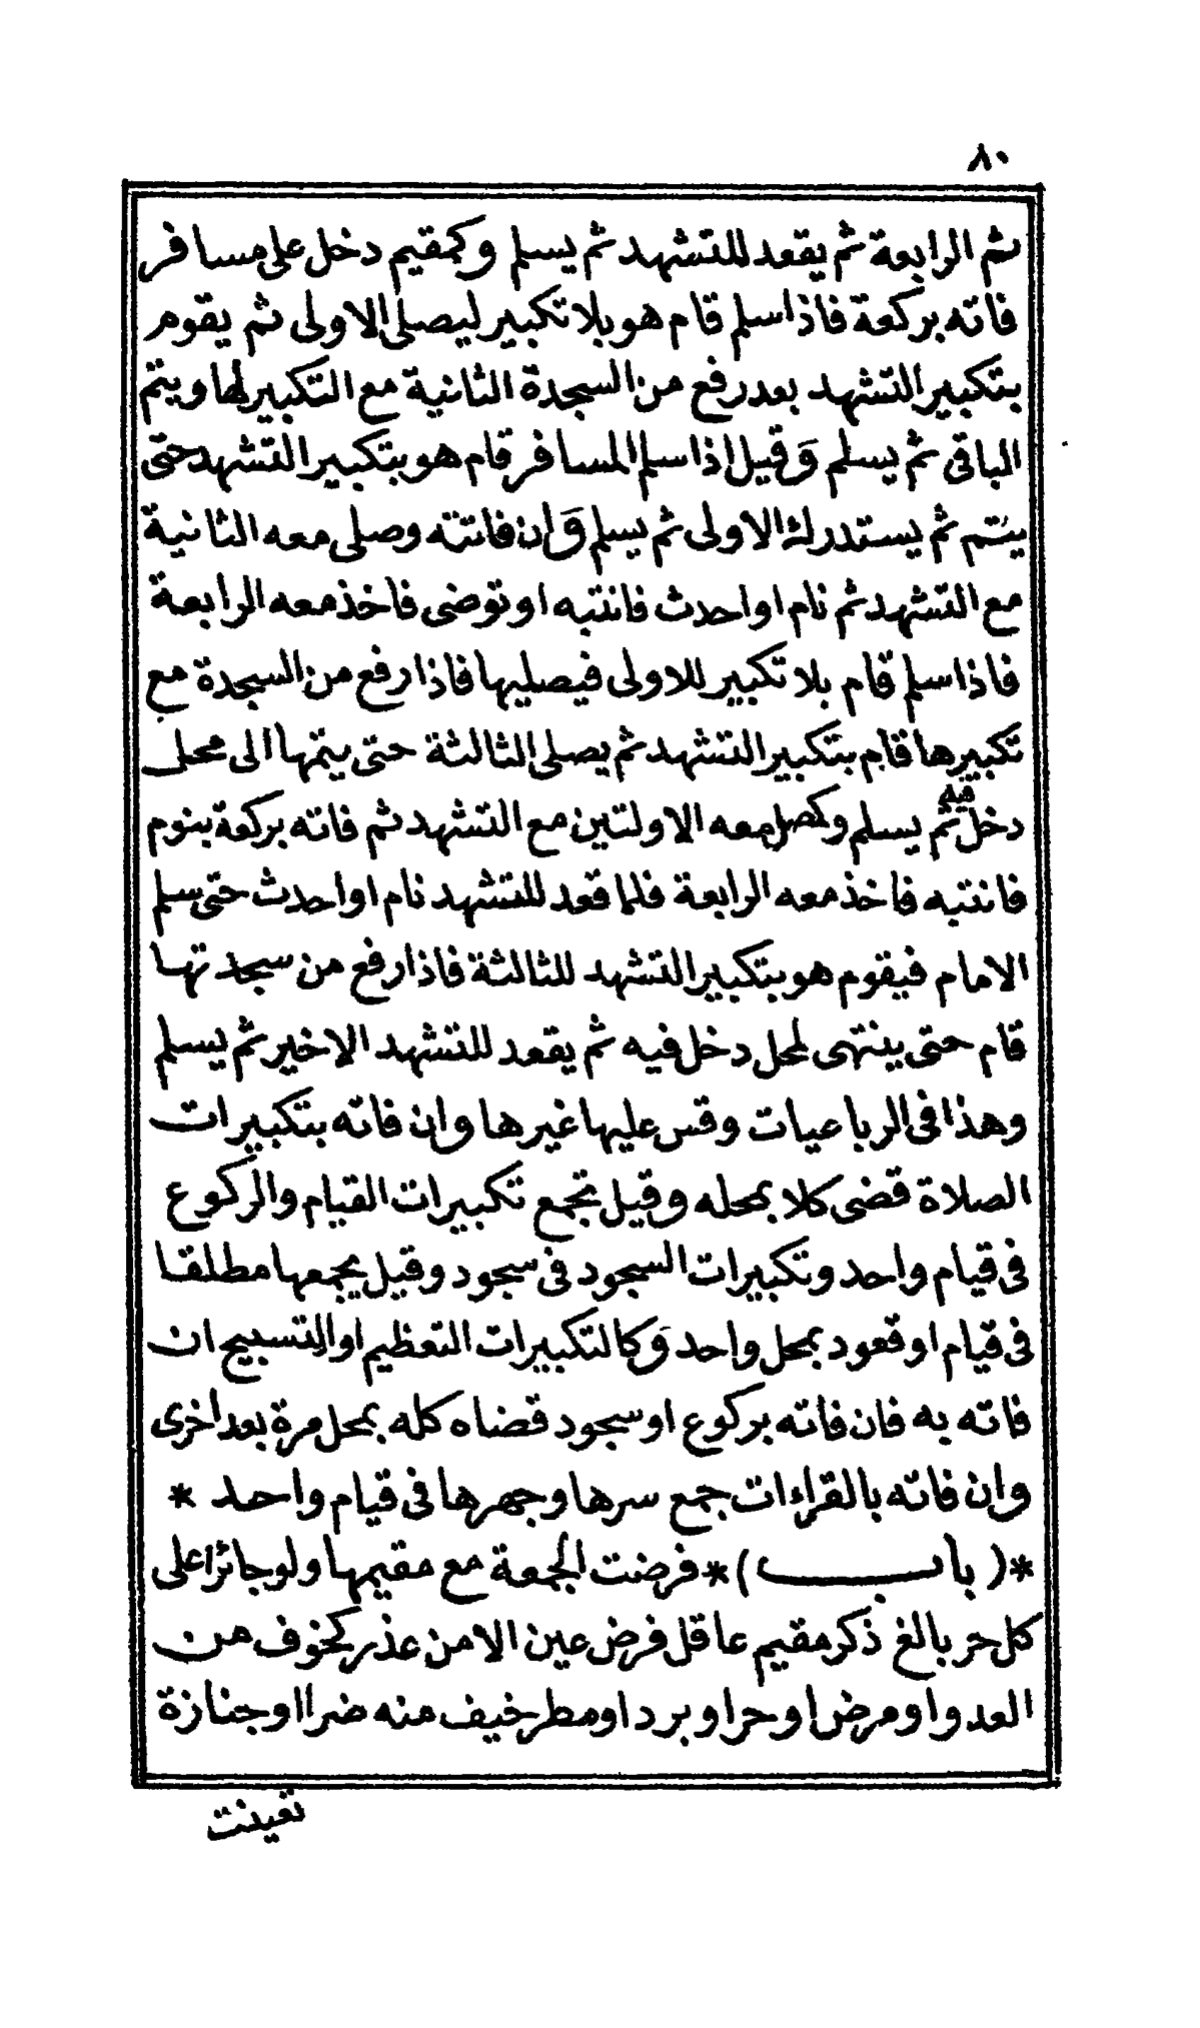 ٨٠
ثم الرابعة ثم يقعد للتشهد ثم يسلم وكمقيم دخل على مسافر
فاته بركعة فاذا سلم قام هو بلا تكبير ليصلى الاولى ثم يقوم
بتكبير التشهد بعد رفع من السجدة الثانية مع التكبير لها ويتم
الباقى ثم يسلم وَقيل اذا سلم المسافر قام هو بتكبير التشهد حتى
يتم ثم يستدرك الاولى ثم يسلم وَان فاتته وصلى معه الثانية
مع التشهد ثم نام او احدث فانتبه او توضى فاخذ معه الرابعة
فاذا سلم قام بلا تكبير للاولى فيصليها فاذا رفع من السجدة مع
تكبيرها قام بتكبير التشهد ثم يصلى الثالثة حتى يتمها الى محل
دخل فيه ثم يسلم وكصل معه الاولتين مع التشهد ثم فاته بركعة بنوم
فانتبه فاخذ معه الرابعة فلما قعد للتشهد نام او احدث حتى سلم
الامام فيقوم هو بتكبير التشهد للثالثة فاذا رفع من سجدتها
قام حتى ينتهى لمحل دخل فيه ثم يقعد للتشهد الاخير ثم يسلم
وهذا فى الرباعيات وقس عليها غيرها وان فاته بتكبيرات
الصلاة قضى كلا بمحله وقيل تجمع تكبيرات القيام والركوع
فى قيام واحد وتكبيرات السجود فى سجود وقيل يجمعها مطلقا
فى قيام او قعود بمحل واحد وَكالتكبيرات التعظيم او التسبيح ان
فاته به فان فاته بركوع او سجود قضاه كله بمحل مرة بعد اخرى
وان فاته بالقراءات جمع سرها وجهرها فى قيام واحد *
*( باب )* فرضت الجمعة مع مقيمها ولو جائرا على
كل حر بالغ ذكر مقيم عاقل فرض عين الا من عذر كخوف من
العدو او مرض او حر او برد او مطر خيف منه ضرا او جنازة
تعينت